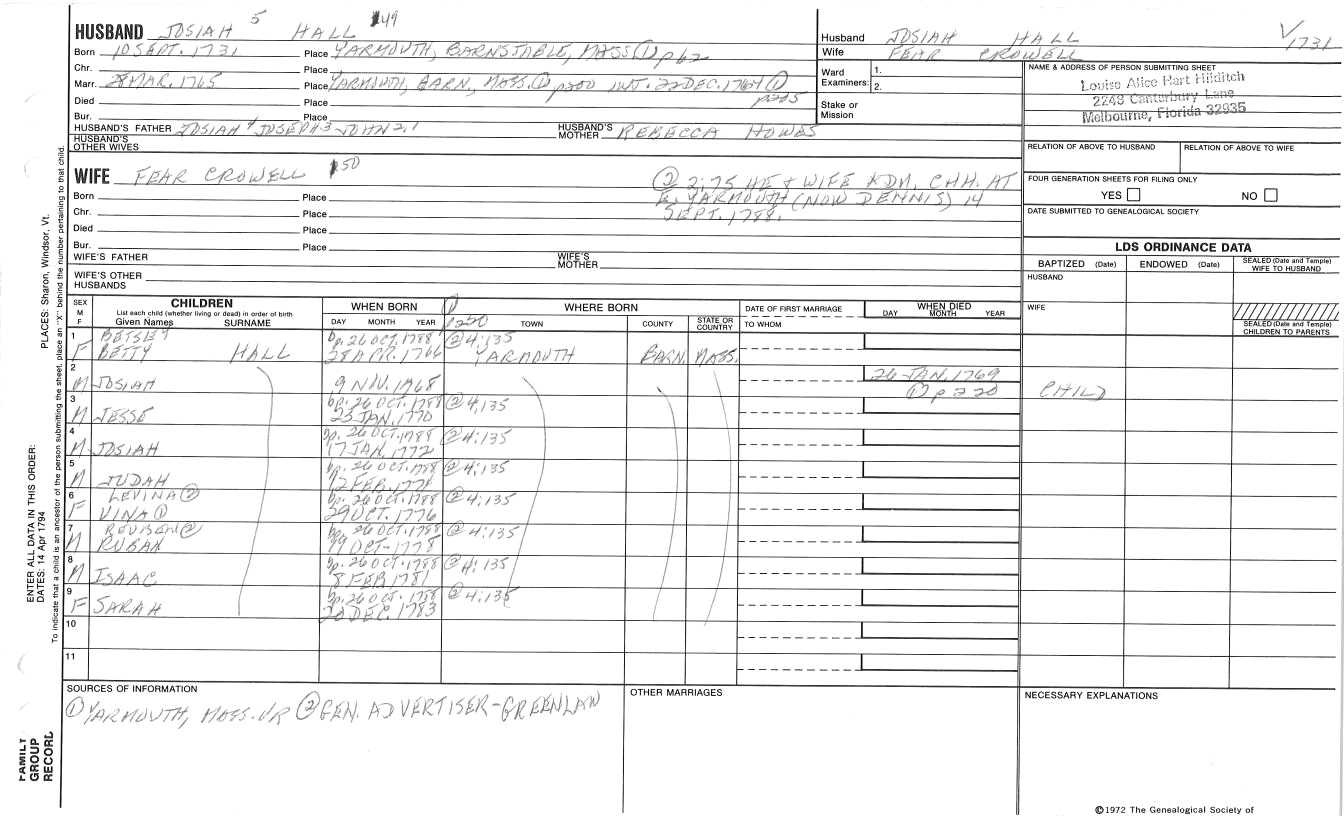 HUSBAND JOSIAH 5 HALL 49
Born 10 SEPT. 1731 Place YARMOUTH, BARNSTABLE, MASS (1) p62
Chr. Place
Marr. 28 MAR. 1765 Place YARMOUTH, BARN., MASS. (1) p200 INT. 22 DEC. 1764 (1)
Died Place p225
Bur. Place
HUSBAND'S FATHER JOSIAH 4 JOSEPH 3 JOHN 2, 1 HUSBAND'S MOTHER REBECCA HOWES
HUSBAND'S OTHER WIVES
Husband JOSIAH HALL
Wife FEAR CROWELL
Ward Examiners: 1.
2.
Stake or Mission
V 1731
NAME & ADDRESS OF PERSON SUBMITTING SHEET
Louise Alice Hart Hilditch
2248 Canterbury Lane
Melbourne, Florida 32935
RELATION OF ABOVE TO HUSBAND RELATION OF ABOVE TO WIFE
FOUR GENERATION SHEETS FOR FILING ONLY
YES NO
DATE SUBMITTED TO GENEALOGICAL SOCIETY
WIFE FEAR CROWELL 50
(2) 2:75 HE & WIFE ADM. CHH. AT
E. YARMOUTH (NOW DENNIS) 14
SEPT. 1788.
Born Place
Chr. Place
Died Place
Bur. Place
WIFE'S FATHER WIFE'S MOTHER
WIFE'S OTHER HUSBANDS
LDS ORDINANCE DATA
BAPTIZED (Date) ENDOWED (Date) SEALED (Date and Temple) WIFE TO HUSBAND
HUSBAND
WIFE
SEALED (Date and Temple) CHILDREN TO PARENTS
SEX M F
CHILDREN
List each child (whether living or dead) in order of birth
Given Names SURNAME
WHEN BORN
DAY MONTH YEAR
(1) p250
WHERE BORN
TOWN COUNTY STATE OR COUNTRY
DATE OF FIRST MARRIAGE
TO WHOM
WHEN DIED
DAY MONTH YEAR
1 BETSEY bp. 26 OCT. 1788 (2) 4:135
F BETTY HALL 28 APR. 1766 YARMOUTH BARN. MASS.
2 26 JAN. 1769
M JOSIAH 9 NOV. 1768 (1) p220 CHILD
3 bp. 26 OCT. 1788 (2) 4:135
M JESSE 25 JAN. 1770
4 bp. 26 OCT. 1788 (2) 4:135
M JOSIAH 17 JAN. 1772
5 bp. 26 OCT. 1788 (2) 4:135
M JUDAH 12 FEB. 1774
6 LEVINA (2) bp. 26 OCT. 1788 (2) 4:135
F VINA (1) 29 OCT. 1776
7 REUBEN (2) bp. 26 OCT. 1788 (2) 4:135
M RUBAN 19 OCT. 1778
8 bp. 26 OCT. 1788 (2) 4:135
M ISAAC 8 FEB 1781
9 bp. 26 OCT. 1788 (2) 4:135
F SARAH 20 DEC. 1783
10
11
SOURCES OF INFORMATION
(1) YARMOUTH, MASS. VR (2) GEN. ADVERTISER-GREENLAW
OTHER MARRIAGES
NECESSARY EXPLANATIONS
©1972 The Genealogical Society of
PLACES: Sharon, Windsor, Vt.
ENTER ALL DATA IN THIS ORDER:
DATES: 14 Apr 1794
To indicate that a child is an ancestor of the person submitting the sheet, place an "X" behind the number pertaining to that child.
FAMILY
GROUP
RECORD